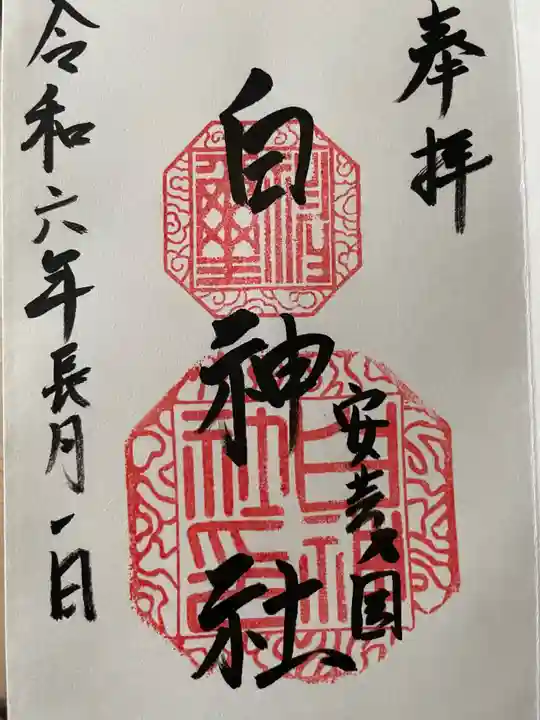 奉拝
安芸国
白神社
白神社印
令和六年長月一日